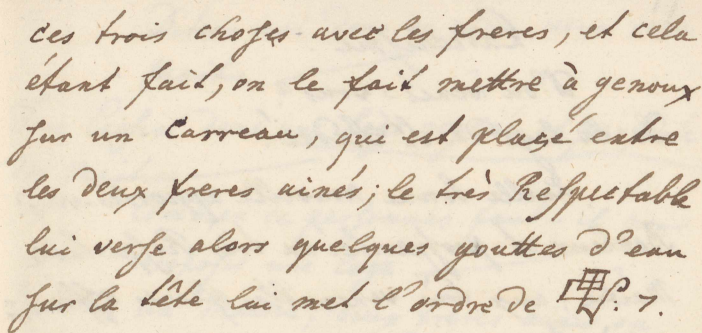 ces trois choses avec les freres, et cela
étant fait, on le fait mettre à genoux
sur un Carreau, qui est placé entre
les deux freres ainés; le très Respectable
lui verse alors quelques gouttes d'eau
sur la tête lui met l'ordre de